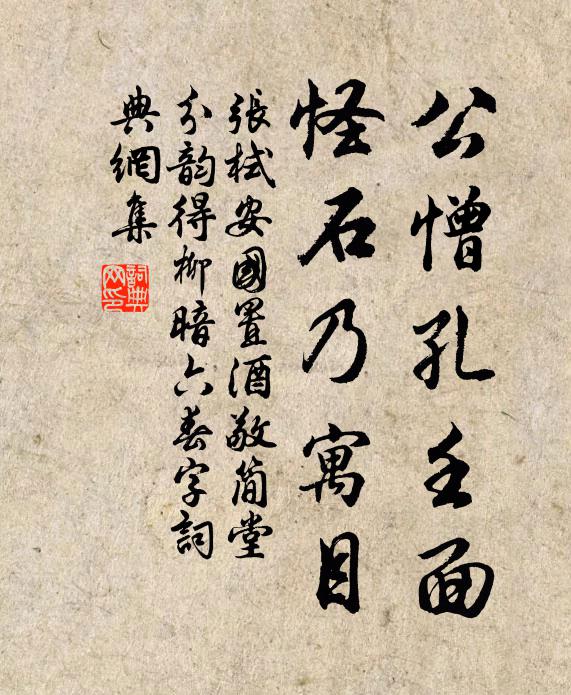 公憎孔壬面
怪石乃寓目
張栻安國置酒敬简堂
分韵得柳暗六春字詞
典網集
詞典網印